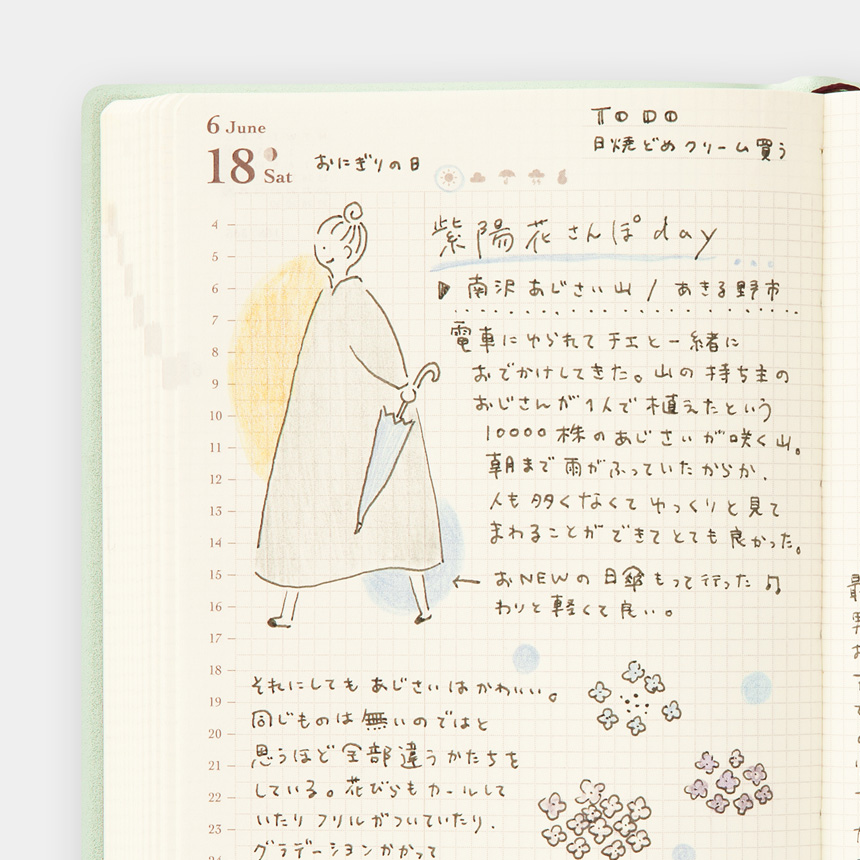 6 June
18 Sat
おにぎりの日
TO DO
日焼どめクリーム買う
紫陽花さんぽ day
南沢 あじさい山 / あきる野市
電車にゆられて チエと一緒に
おでかけしてきた。山の持ち主の
おじさんが1人で植えたという
10000株のあじさいが咲く山。
朝まで雨がふっていたからか、
人も多くなくてゆっくりと見て
まわることができてとても良かった。
← おNEWの日傘もって行った♫
わりと軽くて良い。
4
5
6
7
8
9
10
11
12
13
14
15
16
17
18
19
20
21
22
23
24
それにしてもあじさいはかわいい。
同じものは無いのではと
思うほど全部違うかたちを
している。花びらもカールして
いたりフリルがついていたり、
グラデーションかかって